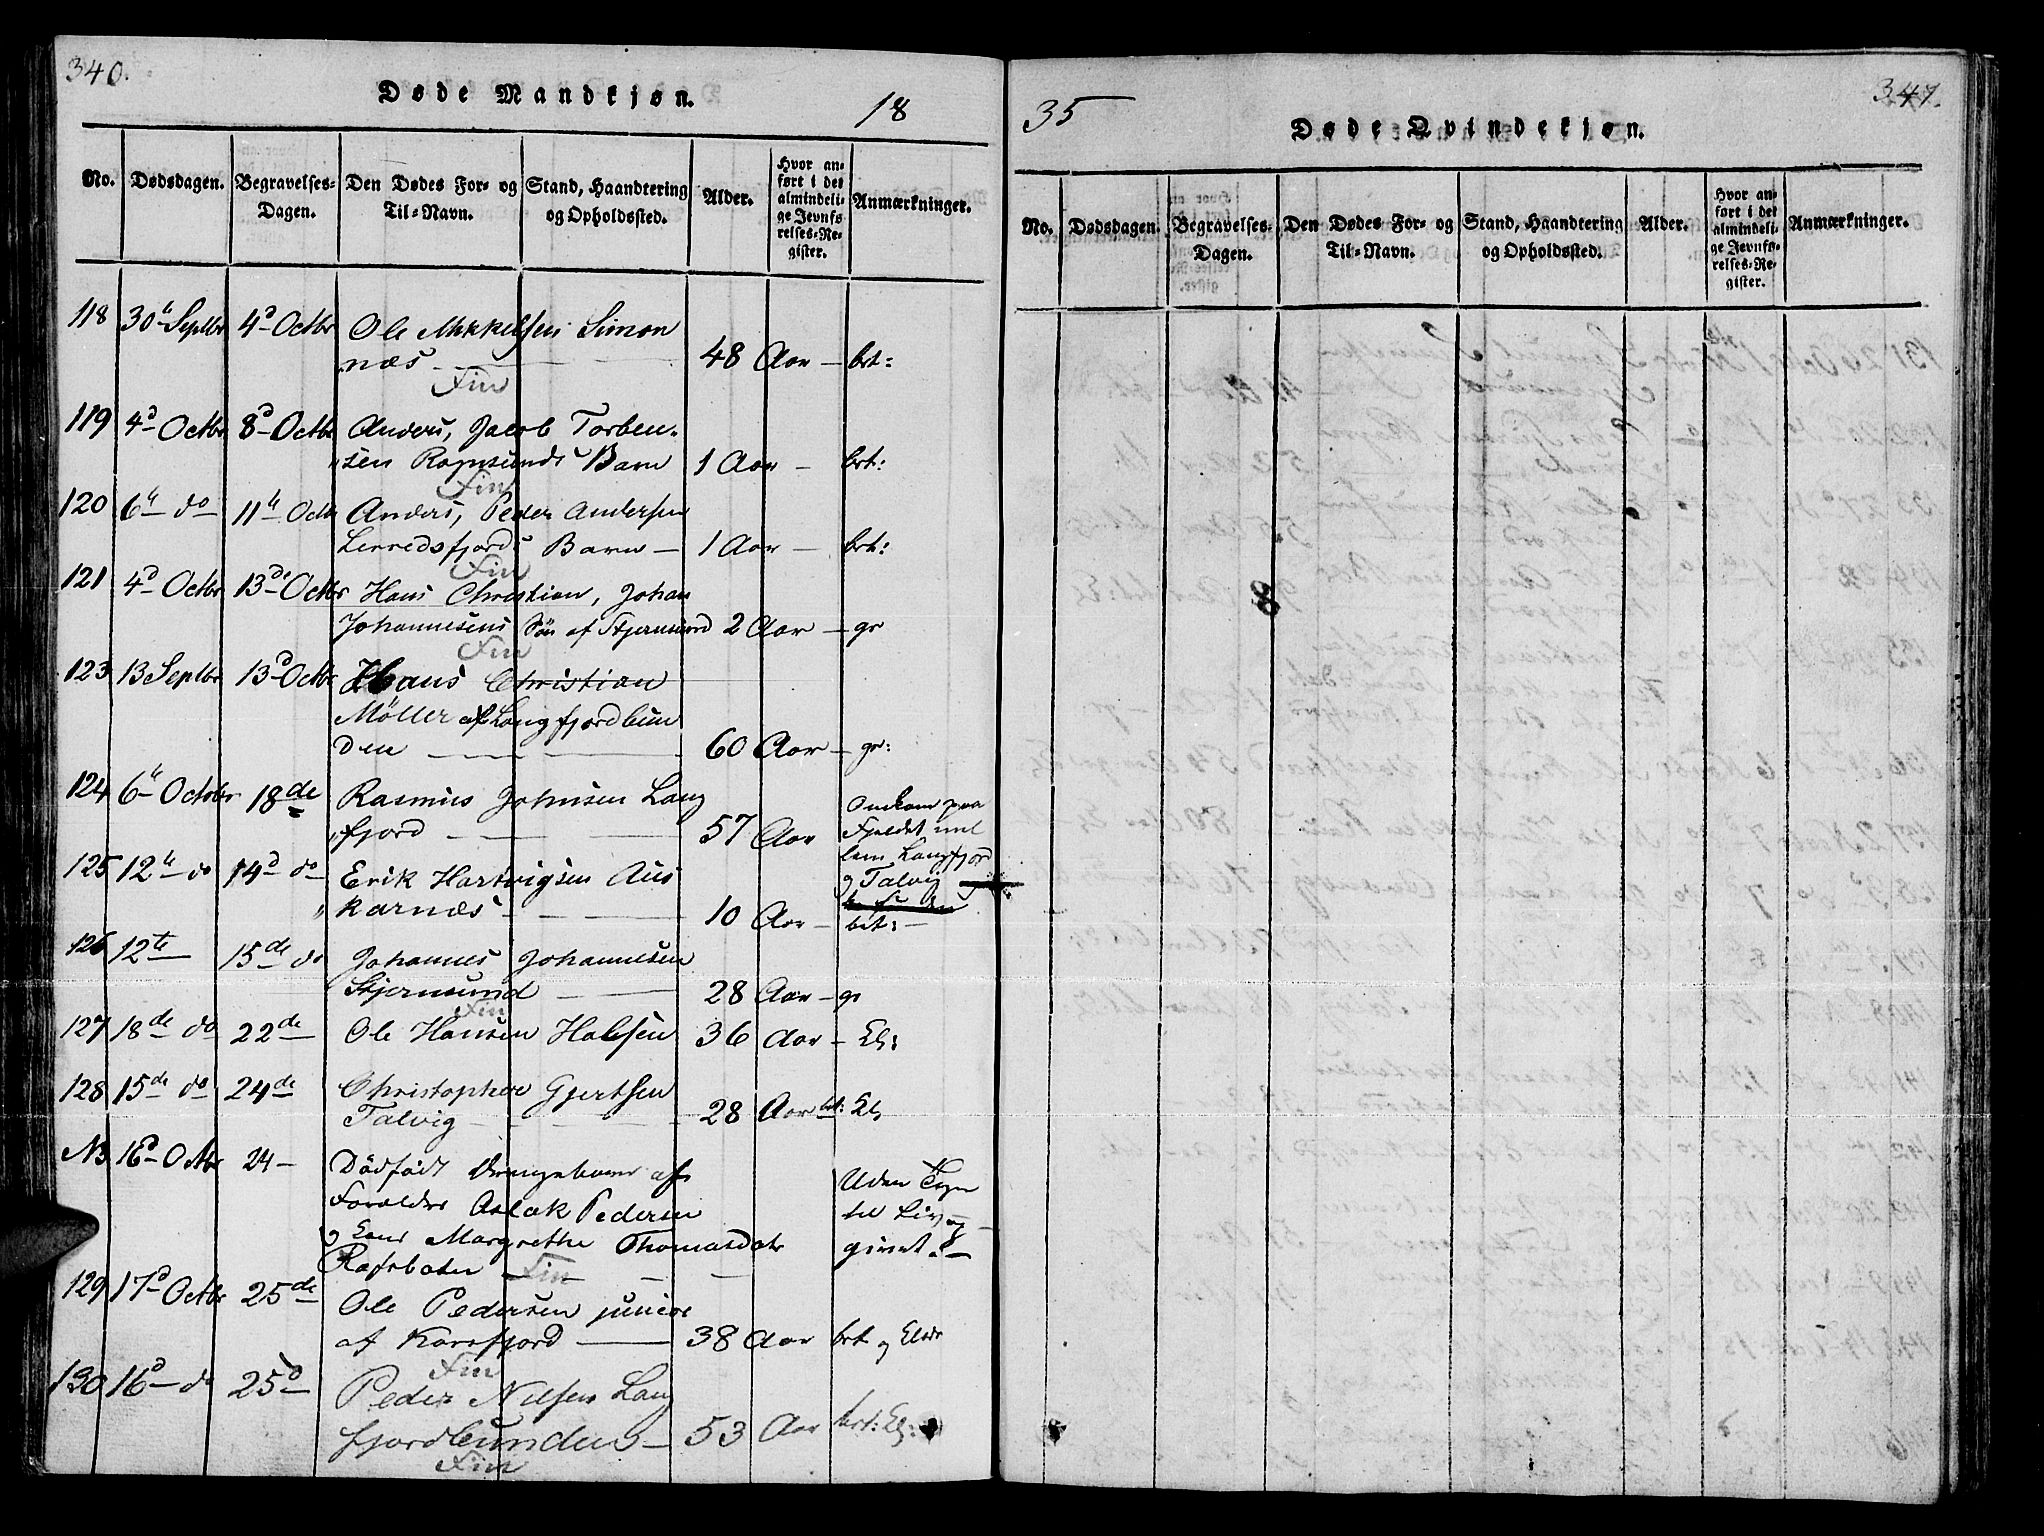 340.
Døde Mandkjøn.
18
No.
Dødsdagen.
Begravelses-
Dagen.
Den Dødes For- og
Til-Navn.
Stand, Haandtering
og Opholdssted.
Alder.
Hvor an-
ført i det
almindeli-
ge Jevnfø-
relses-Re-
gister.
Anmærkninger.
118 30te Septbr 4d Octbr Ole Mikkelsen Simon
næs 48 Aar brt:
Fin
119 4d Octbr 8d Octbr Anders, Jacob Torben-
sen Rognsunds Barn 1 Aar brt:
Fin
120 6te do 11te Octbr Anders, Peder Andersen
Lerredsfjords Barn 1 Aar brt:
Fin
121 4d Octbr 13de Octbr Hans Christian, Johan
Johannesens Søn af Stjernsund 2 Aar gr
Fin
123 13 Septbr 13d Octbr Hans Christian
Möller af Langfjordbun
den 60 Aar gr:
124 6te October 18de Rasmus Johnsen Lang
fjord 57 Aar
Omkom paa
Fjeldet mel
lem Langfjord
og Talvig
125 12te do 14d do Erik Hartvigsen Aus
karnæs 10 Aar brt:
126 12te 15de do Johannes Johannesen
Stjernsund 28 Aar gr
Fin
127 18de do 22de Ole Hansen Halsen 36 Aar El:
128 15de do 24de Christopher Gjertsen
Talvig 28 Aar brt: El
NB 16d Octbr 24 Dödfödt Drengebarn af
Forældre Aslak Pedersen
og Margrethe Thomasdatr
Rafsbaten Fin
Uden Tegn
til Liv og
givet
129 17d Octbr 25de Ole Pedersen junior
af Korsfjord 38 Aar brt og
Fin
130 16d do 25d Peder Nilsen Lang
fjordbunden 53 Aar brt: El:
Fin
35
347.
Døde Qvindekjøn.
No.
Dødsdagen.
Begravelses-
Dagen.
Den Dødes For- og
Til-Navn.
Stand, Haandtering
og Opholdssted.
Alder.
Hvor an-
ført i det
almindeli-
ge Jevnfø-
relses-Re-
gister.
Anmærkninger.